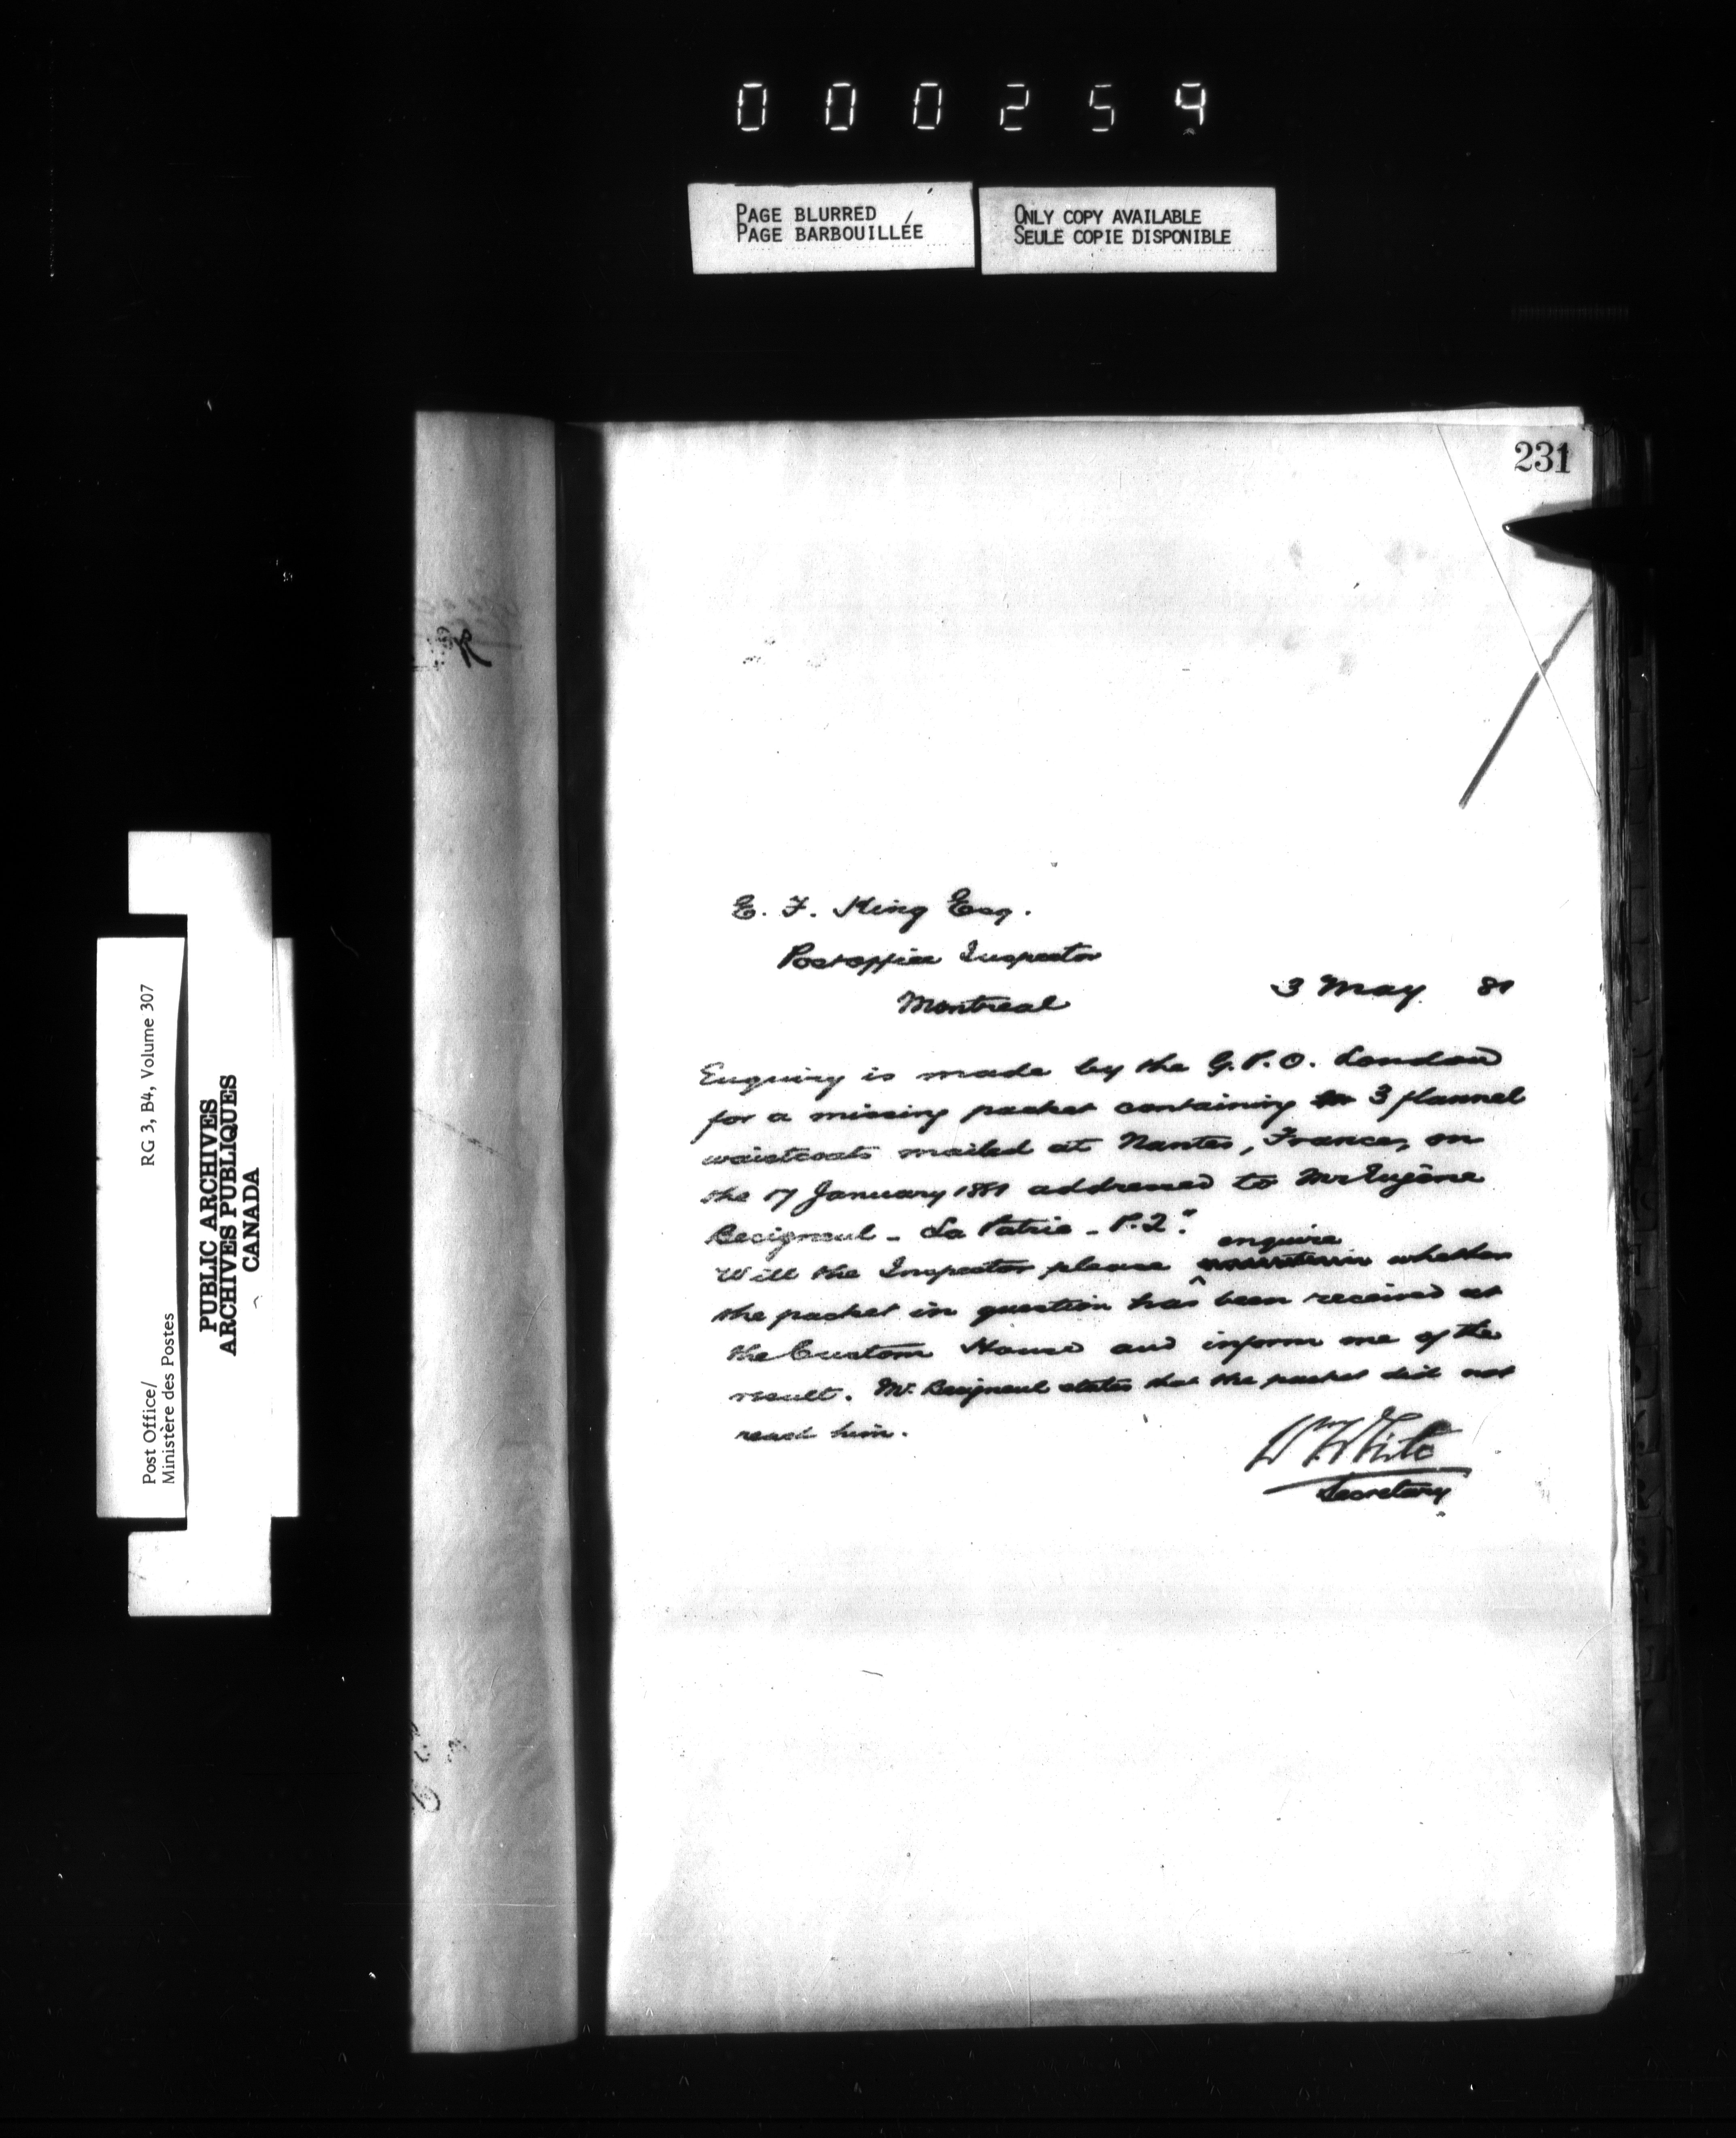 000259
PAGE BLURRED
PAGE BARBOUILLÉE
ONLY COPY AVAILABLE
SEULE COPIE DISPONIBLE
231
E. F. King Esq.
Postoffice Inspector
Montreal
3 May 81
Enquiry is made by the G.P.O. London
for a missing packet containing 3 flannel
waistcoats mailed at Nantes, France, on
the 17 January 1881 addressed to Mr Eugène
Becigneul - La Patrie - P.2."
enquire
Will the Inspector please whether
the packet in question has been received at
the Custom House and inform me of the
result. Mr. Becigneul states that the packet did not
reach him.
Wm White
Secretary
Post Office/
Ministère des Postes
RG 3, B4, Volume 307
PUBLIC ARCHIVES
ARCHIVES PUBLIQUES
CANADA